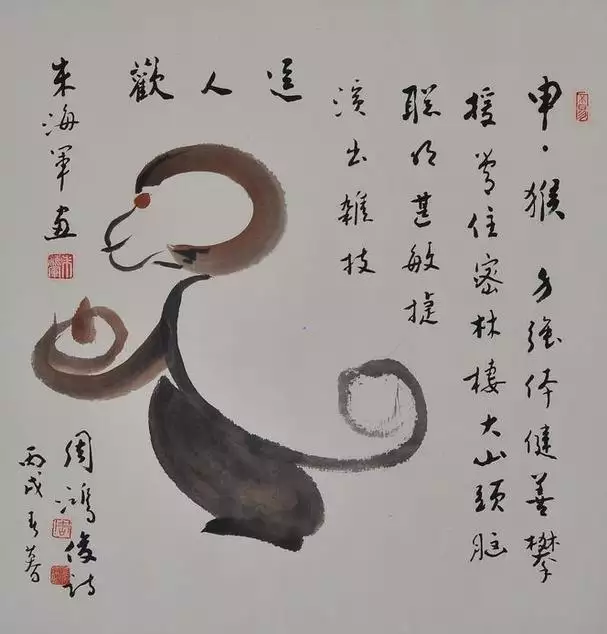 申·猴 力强体健善攀
援常住密林棲大山頭脑
聪明甚敏捷
演出雜技
逗人歡
朱海軍画
周鴻俊诗
丙戌春暮